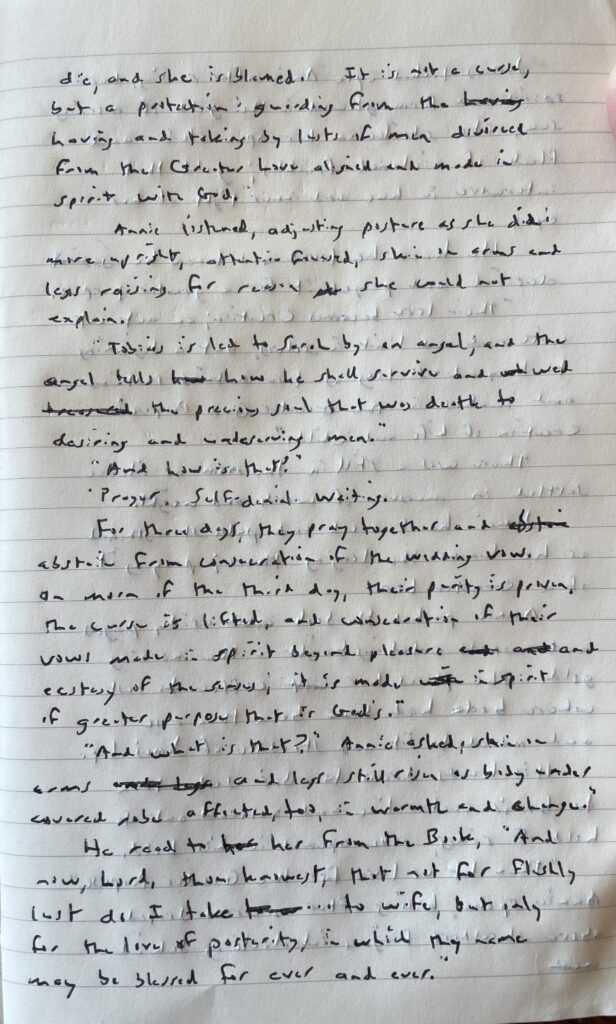 die, and she is blamed. It is not a curse,
but a protection: guarding from the having
having and taking by lusts of men divorced
from the Greater Love aligned and made in
spirit with God."
Annie listened, adjusting posture as she did:
more upright, attention focused, skin on arms and
legs raising for reason she could not
explain.
"Tobias is led to Sarah by an angel; and the
angel tells how he shall survive and wed
the precious soul that was death to
desiring and undeserving men."
"And how is that?"
"Prayer. Self-denial. Waiting.
For three days, they pray together and abstain
abstain from consecration of the wedding vow.
On morn of the third day, their purity is proven,
the curse is lifted, and consecration of their
vows made in spirit beyond pleasure and and
ecstasy of the senses; it is made in spirit
of greater purpose that is God's."
"And what is that?" Annie asked, skin on
arms and legs and legs still risen as body under
covered robe affected, too, in warmth and change."
He read to her from the Book, "And
now, Lord, thou knowest, that not for fleshly
lust do I take ... to wife, but only
for the love of posterity, in which thy name
may be blessed for ever and ever."